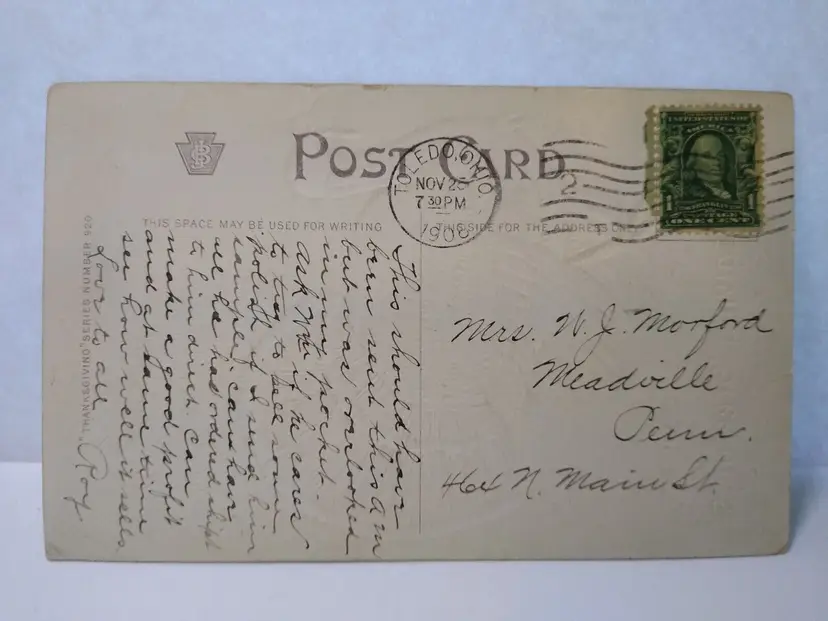 POST CARD
TOLEDO, OHIO.
NOV 25
7 30 PM
1908
2
UNITED STATES OF
AMERICA
1 1
FRANKLIN
POSTAGE
ONE CENT
THIS SPACE MAY BE USED FOR WRITING
THIS SIDE FOR THE ADDRESS ONLY
"THANKSGIVING" SERIES NUMBER 920
This should have
been sent this a m
but was overlooked
in my pocket.
Ask Will if he cares
to try to sell some
polish if I send him
sample, cans have
all he has ordered shipt
to him direct. Can
make a good profit
and at same time
see how well it sells
Love to all
Roy
Mrs. W. J. Morford
Meadville
Penn.
464 N. Main St.